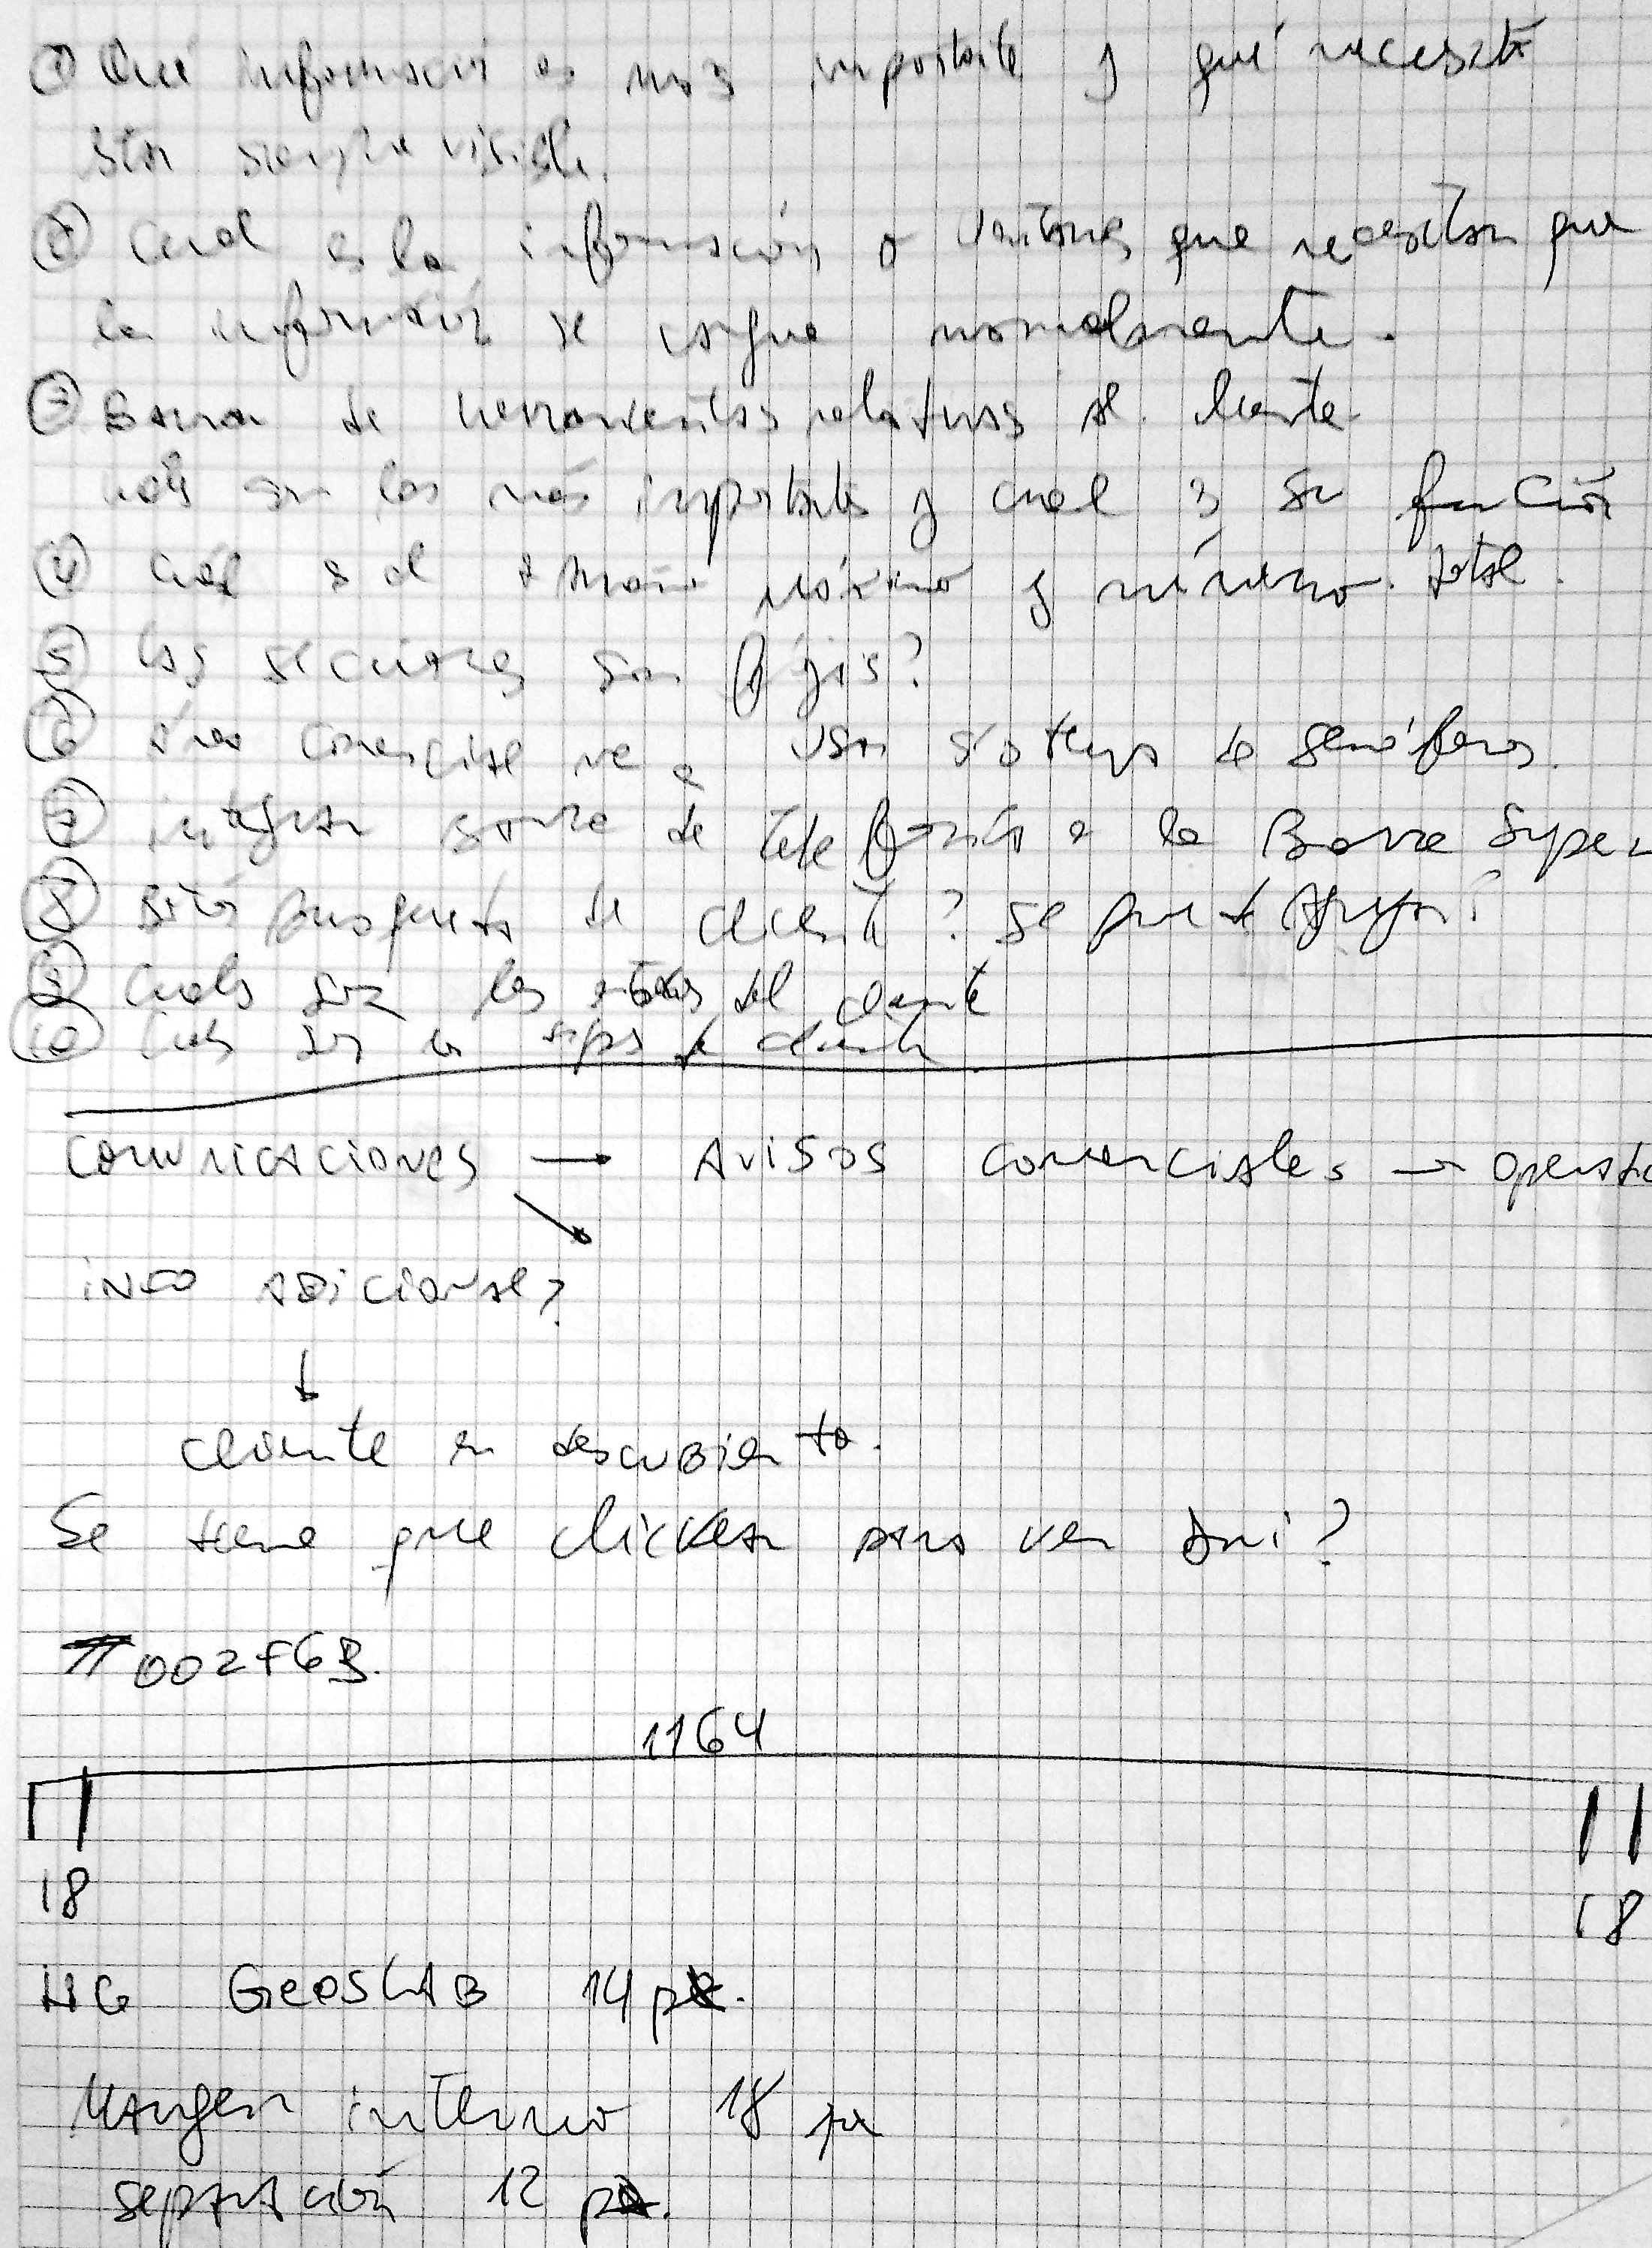 ① Qué información es más importante y qué necesita
estar siempre visible.
② Cual es la información o ventanas que necesitan que
la información se cargue normalmente.
③ Barra de herramientas relativas al cliente
son las más importantes y cual es su función
④ Cual es el tamaño máximo y mínimo. total.
⑤ Las secciones son fijas?
⑥ Área comercial va a usar sistema de semáforos.
⑦ integrar barra de telefonía a la Barra Super
⑧ de cliente? se puede agregar?
⑨ Cuales son los del cliente
⑩ Cuales son los tipos de cliente
COMUNICACIONES → AVISOS comerciales → operati
INFO ADICIONAL?
↓
cliente en descubierto.
Se tiene que clickear para ver DNI?
002F6B.
1164
18 18
HG GEOSLAB 14 px.
Margen interno 18 px
separación 12 px.